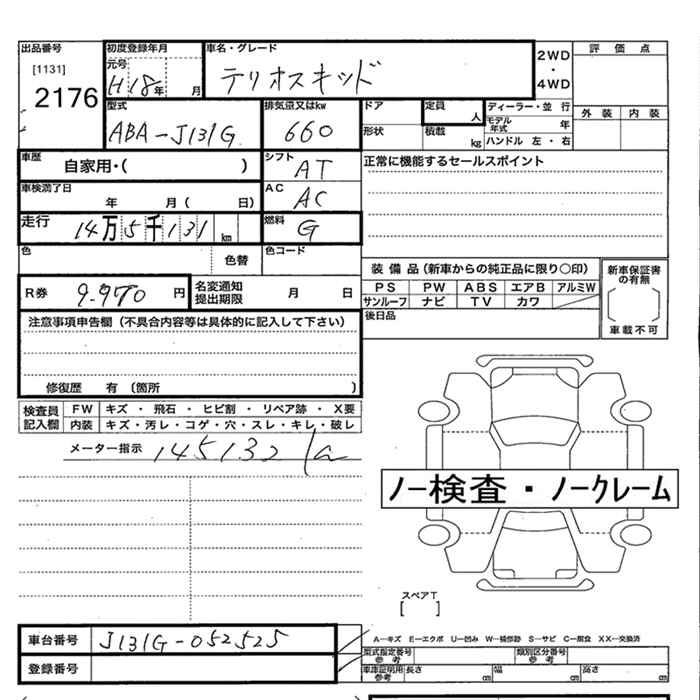 出品番号
[1131]
2176
初度登録年月
元号
H18年 月
車名・グレード
テリオスキッド
2WD
・
4WD
評価点
外装 内装
型式
ABA-J131G
排気量又はkw
660
ドア
形状
定員
人
積載
kg
ディーラー・並 行
モデル年式 年
ハンドル 左・右
車歴
自家用・( )
シフト
AT
正常に機能するセールスポイント
車検満了日
年 月( 日)
AC
AC
走行
14万5千131km
燃料
G
色
色替
色コード
R券 9.970円
名変通知
提出期限
月 日
装備品(新車からの純正品に限り○印)
PS PW ABS エアB アルミW
サンルーフ ナビ TV カワ
新車保証書
の有無
車載不可
後日品
注意事項申告欄(不具合内容等は具体的に記入して下さい)
修復歴 有(箇所 )
検査員
記入欄
FW キズ・飛石・ヒビ割・リペア跡・X要
内装 キズ・汚レ・コゲ・穴・スレ・キレ・破レ
メーター指示 145132
ノー検査・ノークレーム
スペアT
[ ]
車台番号 J131G-052525
登録番号
A―キズ E―エクボ U―凹み W―補修跡 S―サビ C―腐食 XX―交換済
型式指定番号
参考
類別区分番号
参考
車庫証明用
参考
長さ cm 幅 cm 高さ cm